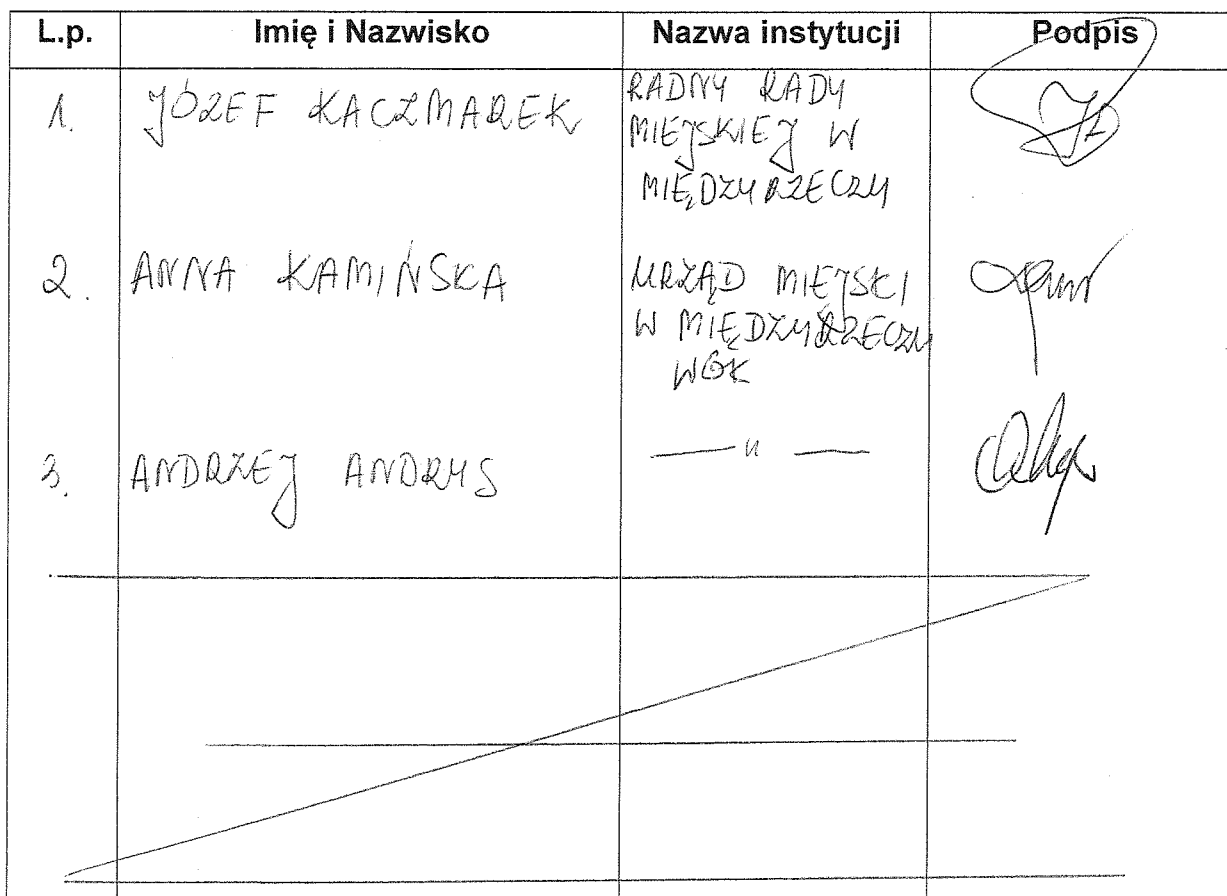 L.p. Imię i Nazwisko Nazwa instytucji Podpis
1. JÓZEF KACZMAREK RADNY RADY
MIEJSKIEJ W
MIĘDZYRZECZU
2. ANNA KAMIŃSKA URZĄD MIEJSKI
W MIĘDZYRZECZU
WGK
3. ANDRZEJ ANDRYS — " —